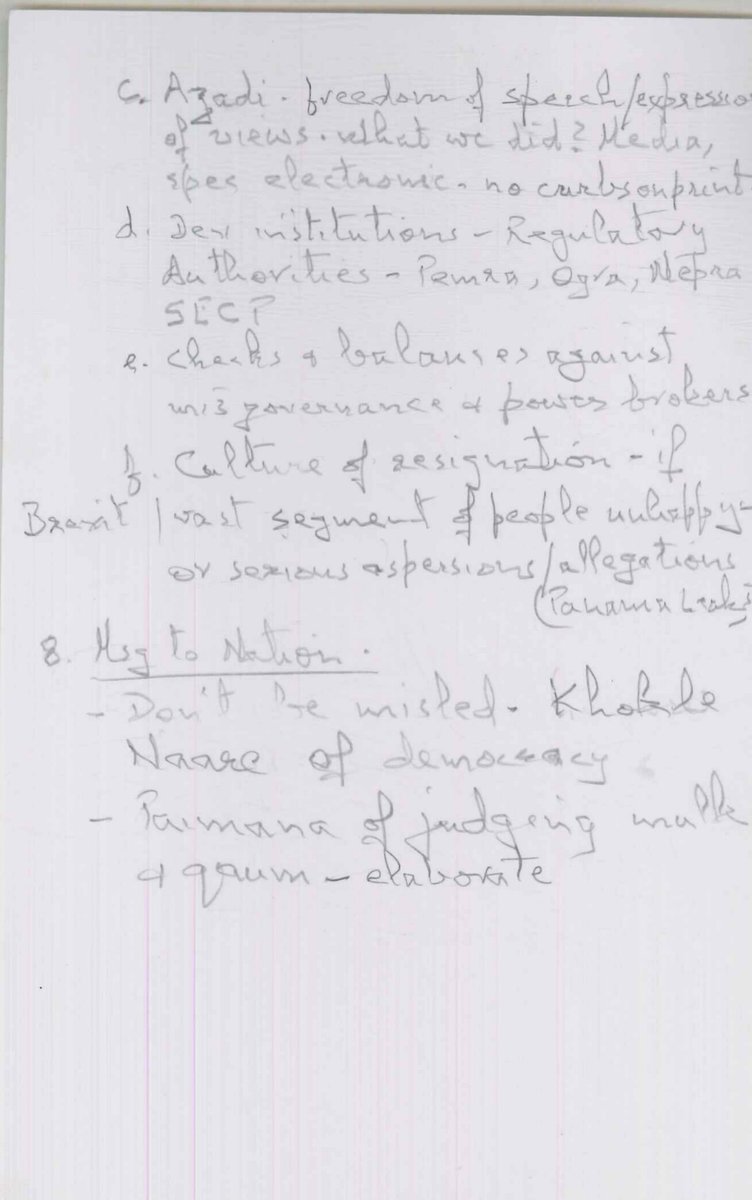 c. Azadi - freedom of speech/expressio
of views. What we did? Media,
spec electronic - no curbs on print
d. Dev institutions - Regulatory
Authorities - Pemra, Ogra, Nepra
SECP
e. Checks & balances against
mis governance & power brokers
f. Culture of resignation - if
Brexit / vast segment of people unhappy -
or serious aspersions/allegations
(Panama Leaks)
8. Msg to Nation.
- Don't be misled. Khokle
Naare of democracy
- Paimana of judgeing mulk
& qaum - elaborate